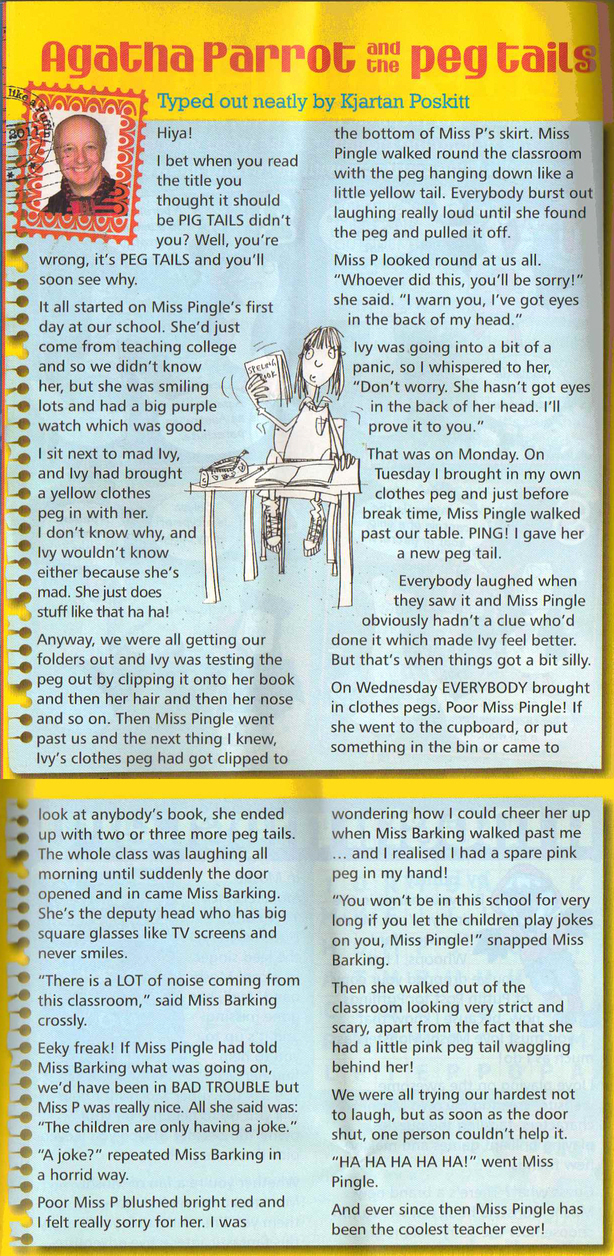 Agatha Parrot and the peg tails
Typed out neatly by Kjartan Poskitt
like a Pa
2011
Hiya!
I bet when you read
the title you
thought it should
be PIG TAILS didn't
you? Well, you're
wrong, it's PEG TAILS and you'll
soon see why.
It all started on Miss Pingle's first
day at our school. She'd just
come from teaching college
and so we didn't know
her, but she was smiling
lots and had a big purple
watch which was good.
I sit next to mad Ivy,
and Ivy had brought
a yellow clothes
peg in with her.
I don't know why, and
Ivy wouldn't know
either because she's
mad. She just does
stuff like that ha ha!
Anyway, we were all getting our
folders out and Ivy was testing the
peg out by clipping it onto her book
and then her hair and then her nose
and so on. Then Miss Pingle went
past us and the next thing I knew,
Ivy's clothes peg had got clipped to
the bottom of Miss P's skirt. Miss
Pingle walked round the classroom
with the peg hanging down like a
little yellow tail. Everybody burst out
laughing really loud until she found
the peg and pulled it off.
Miss P looked round at us all.
"Whoever did this, you'll be sorry!"
she said. "I warn you, I've got eyes
in the back of my head."
Ivy was going into a bit of a
panic, so I whispered to her,
"Don't worry. She hasn't got eyes
in the back of her head. I'll
prove it to you."
That was on Monday. On
Tuesday I brought in my own
clothes peg and just before
break time, Miss Pingle walked
past our table. PING! I gave her
a new peg tail.
Everybody laughed when
they saw it and Miss Pingle
obviously hadn't a clue who'd
done it which made Ivy feel better.
But that's when things got a bit silly.
On Wednesday EVERYBODY brought
in clothes pegs. Poor Miss Pingle! If
she went to the cupboard, or put
something in the bin or came to
look at anybody's book, she ended
up with two or three more peg tails.
The whole class was laughing all
morning until suddenly the door
opened and in came Miss Barking.
She's the deputy head who has big
square glasses like TV screens and
never smiles.
"There is a LOT of noise coming from
this classroom," said Miss Barking
crossly.
Eeky freak! If Miss Pingle had told
Miss Barking what was going on,
we'd have been in BAD TROUBLE but
Miss P was really nice. All she said was:
"The children are only having a joke."
"A joke?" repeated Miss Barking in
a horrid way.
Poor Miss P blushed bright red and
I felt really sorry for her. I was
wondering how I could cheer her up
when Miss Barking walked past me
... and I realised I had a spare pink
peg in my hand!
"You won't be in this school for very
long if you let the children play jokes
on you, Miss Pingle!" snapped Miss
Barking.
Then she walked out of the
classroom looking very strict and
scary, apart from the fact that she
had a little pink peg tail waggling
behind her!
We were all trying our hardest not
to laugh, but as soon as the door
shut, one person couldn't help it.
"HA HA HA HA HA!" went Miss
Pingle.
And ever since then Miss Pingle has
been the coolest teacher ever!